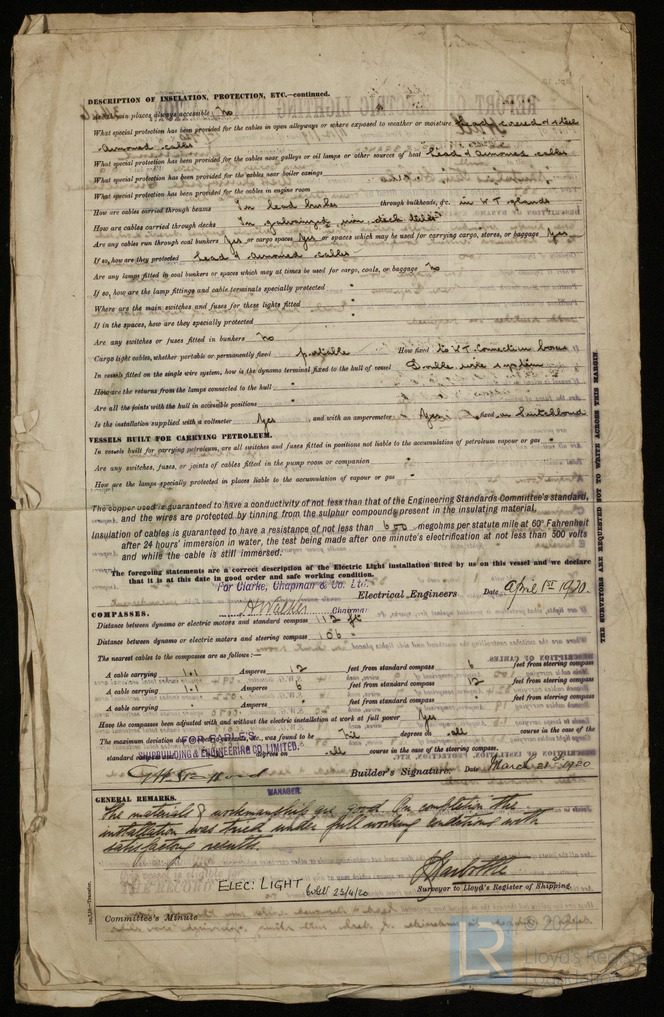 DESCRIPTION OF INSULATION, PROTECTION, ETC.—continued.
places always accessible No
What special protection has been provided for the cables in open alleyways or where exposed to weather or moisture Lead covered & steel
armoured cables
What special protection has been provided for the cables near galleys or oil lamps or other sources of heat Lead & armoured cables
What special protection has been provided for the cables near boiler casings
What special protection has been provided for the cables in engine room
How are cables carried through beams In lead bushes through bulkheads, &c. in W.T. glands
How are cables carried through decks In galvanized iron deck tubes
Are any cables run through coal bunkers Yes or cargo spaces Yes or spaces which may be used for carrying cargo, stores, or baggage Yes
If so, how are they protected Lead & armoured cables
Are any lamps fitted in coal bunkers or spaces which may at times be used for cargo, coals, or baggage No
If so, how are the lamp fittings and cable terminals specially protected "
Where are the main switches and fuses for these lights fitted "
If in the spaces, how are they specially protected "
Are any switches or fuses fitted in bunkers No
Cargo light cables, whether portable or permanently fixed portable How fixed to W.T. Connection boxes
In vessels fitted on the single wire system, how is the dynamo terminal fixed to the hull of vessel Double wire system
How are the returns from the lamps connected to the hull "
Are all the joints with the hull in accessible positions "
Is the installation supplied with a voltmeter Yes, and with an amperemeter Yes, fixed on Switchboard
VESSELS BUILT FOR CARRYING PETROLEUM.
In vessels built for carrying petroleum, are all switches and fuses fitted in positions not liable to the accumulation of petroleum vapour or gas "
Are any switches, fuses, or joints of cables fitted in the pump room or companion "
How are the lamps specially protected in places liable to the accumulation of vapour or gas "
The copper used is guaranteed to have a conductivity of not less than that of the Engineering Standards Committee's standard,
and the wires are protected by tinning from the sulphur compounds present in the insulating material.
Insulation of cables is guaranteed to have a resistance of not less than 600 megohms per statute mile at 60° Fahrenheit
after 24 hours' immersion in water, the test being made after one minute's electrification at not less than 500 volts
and while the cable is still immersed.
The foregoing statements are a correct description of the Electric Light installation fitted by us on this vessel and we declare
that it is at this date in good order and safe working condition.
For Clarke, Chapman & Co. Ltd. Electrical Engineers Date April 1st 1920.
Chairman
COMPASSES.
Distance between dynamo or electric motors and standard compass 112 ft
Distance between dynamo or electric motors and steering compass 106 "
The nearest cables to the compasses are as follows:—
A cable carrying 1.1 Amperes 12 feet from standard compass 6 feet from steering compass
A cable carrying 1.1 Amperes 6 feet from standard compass 12 feet from steering compass
A cable carrying " Amperes " feet from standard compass feet from steering compass
Have the compasses been adjusted with and without the electric installation at work at full power Yes
The maximum deviation due to electric currents, etc., was found to be Nil degrees on all course in the case of the
standard compass and degrees on all course in the case of the steering compass.
FOR EARLE'S
SHIPBUILDING & ENGINEERING CO. LIMITED.
Builder's Signature. Date March 1920
MANAGER.
GENERAL REMARKS.
The materials & workmanship are good. On completion the
installation was tried under full working conditions with
satisfactory results.
Surveyor to Lloyd's Register of Shipping.
ELEC: LIGHT 23/4/20
Committee's Minute
THE SURVEYORS ARE REQUESTED NOT TO WRITE ACROSS THIS MARGIN.
LR
© 2021
Lloyd's Register
Foundation